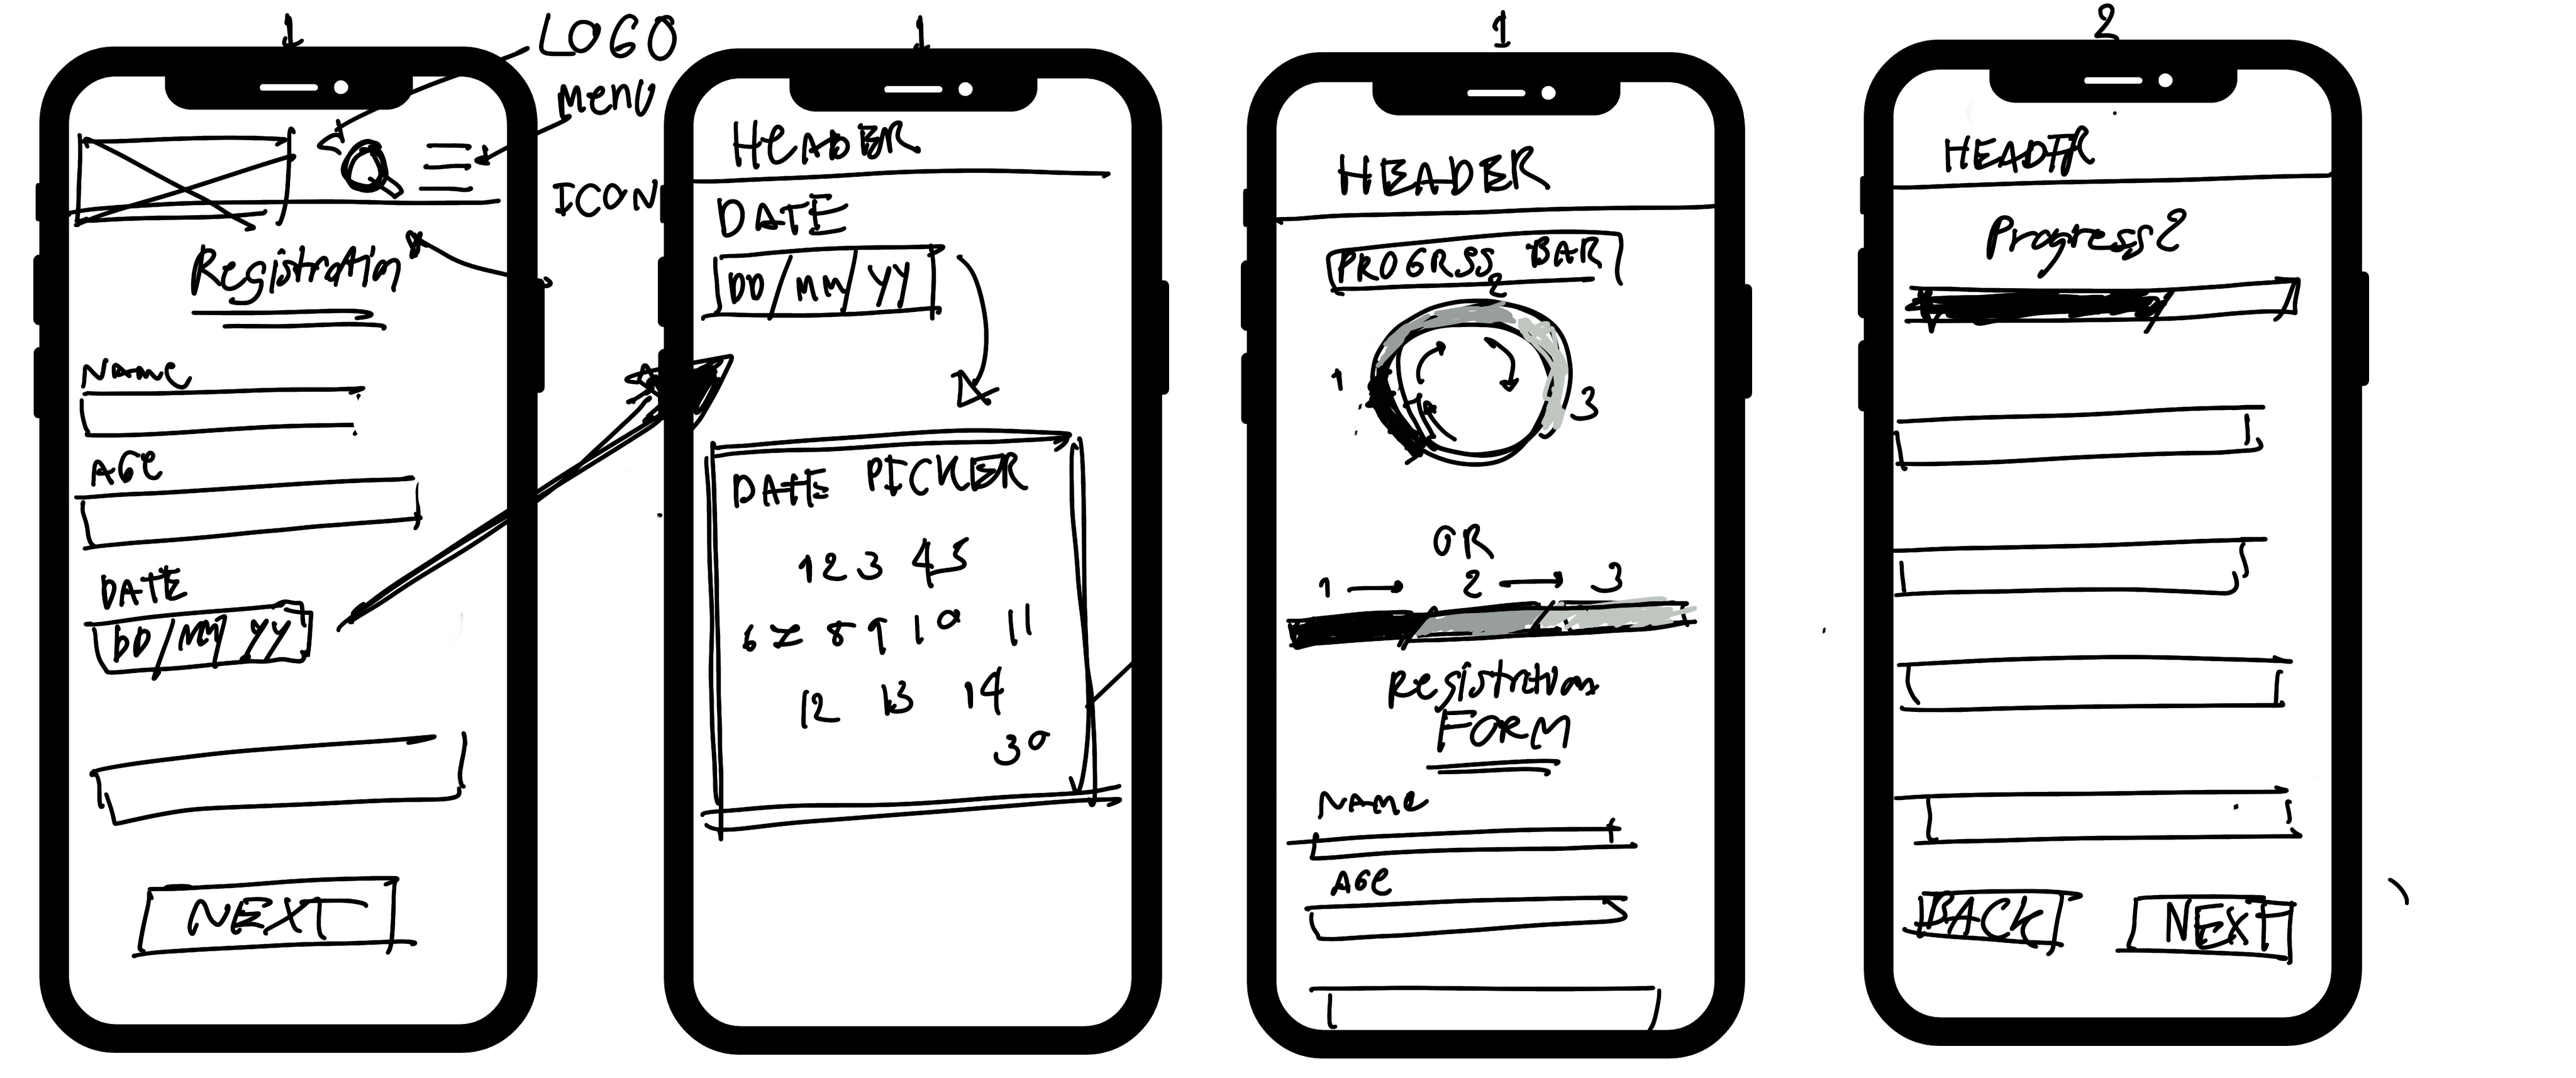 1
LOGO
MENU
ICON
Registration
NAME
AGE
DATE
DD/MM/YY
NEXT
1
HEADER
DATE
DD/MM/YY
DATE PICKER
1 2 3 4 5
6 7 8 9 10 11
12 13 14
30
1
HEADER
PROGRSS BAR
2
1
3
OR
1 2 3
Registration
FORM
NAME
AGE
2
HEADER
Progress 2
BACK NEXT